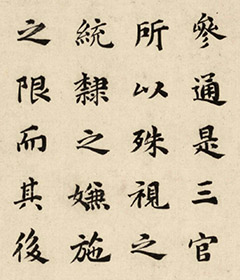 參通是三官
所以殊視之
統隸之嫌施
之限而其後